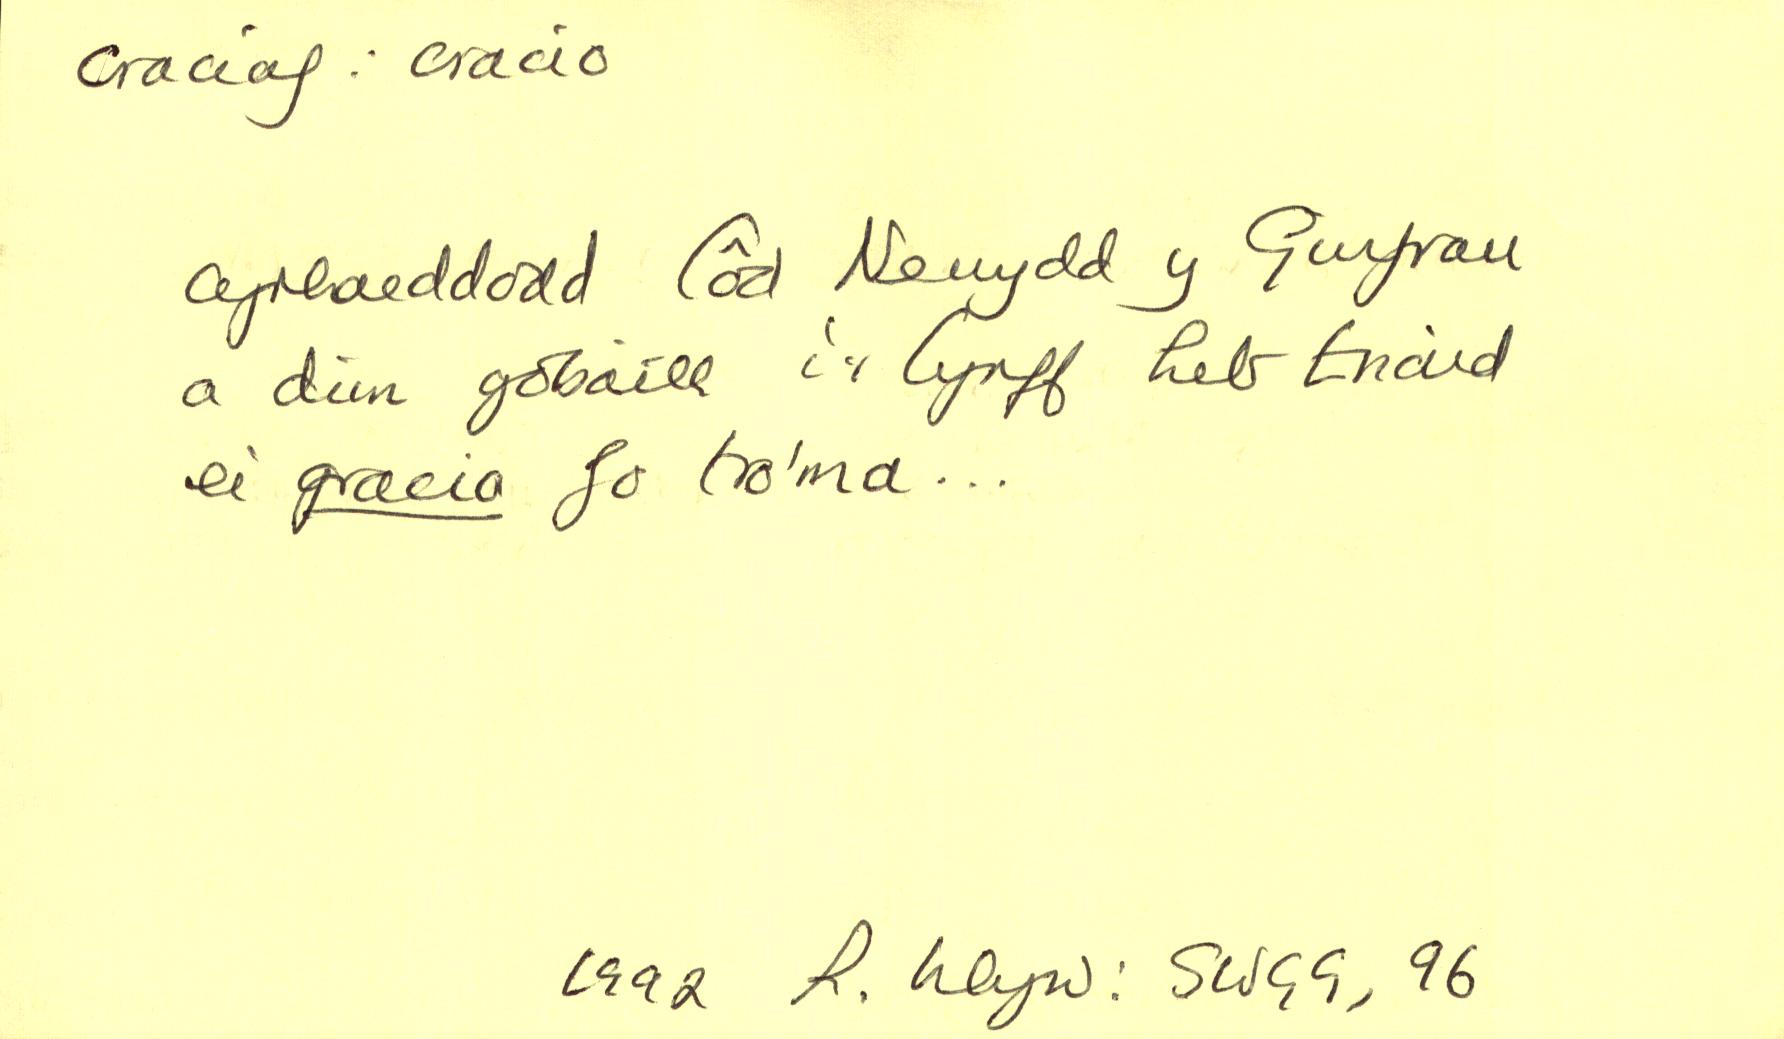 craciaf : cracio
cyrhaeddodd Côd Newydd y Gwifrau
a dim gobaith i'r Cyrff heb Enaid
ei gracio fo tro'ma...
1992 R. Llwyd: SWGG, 96